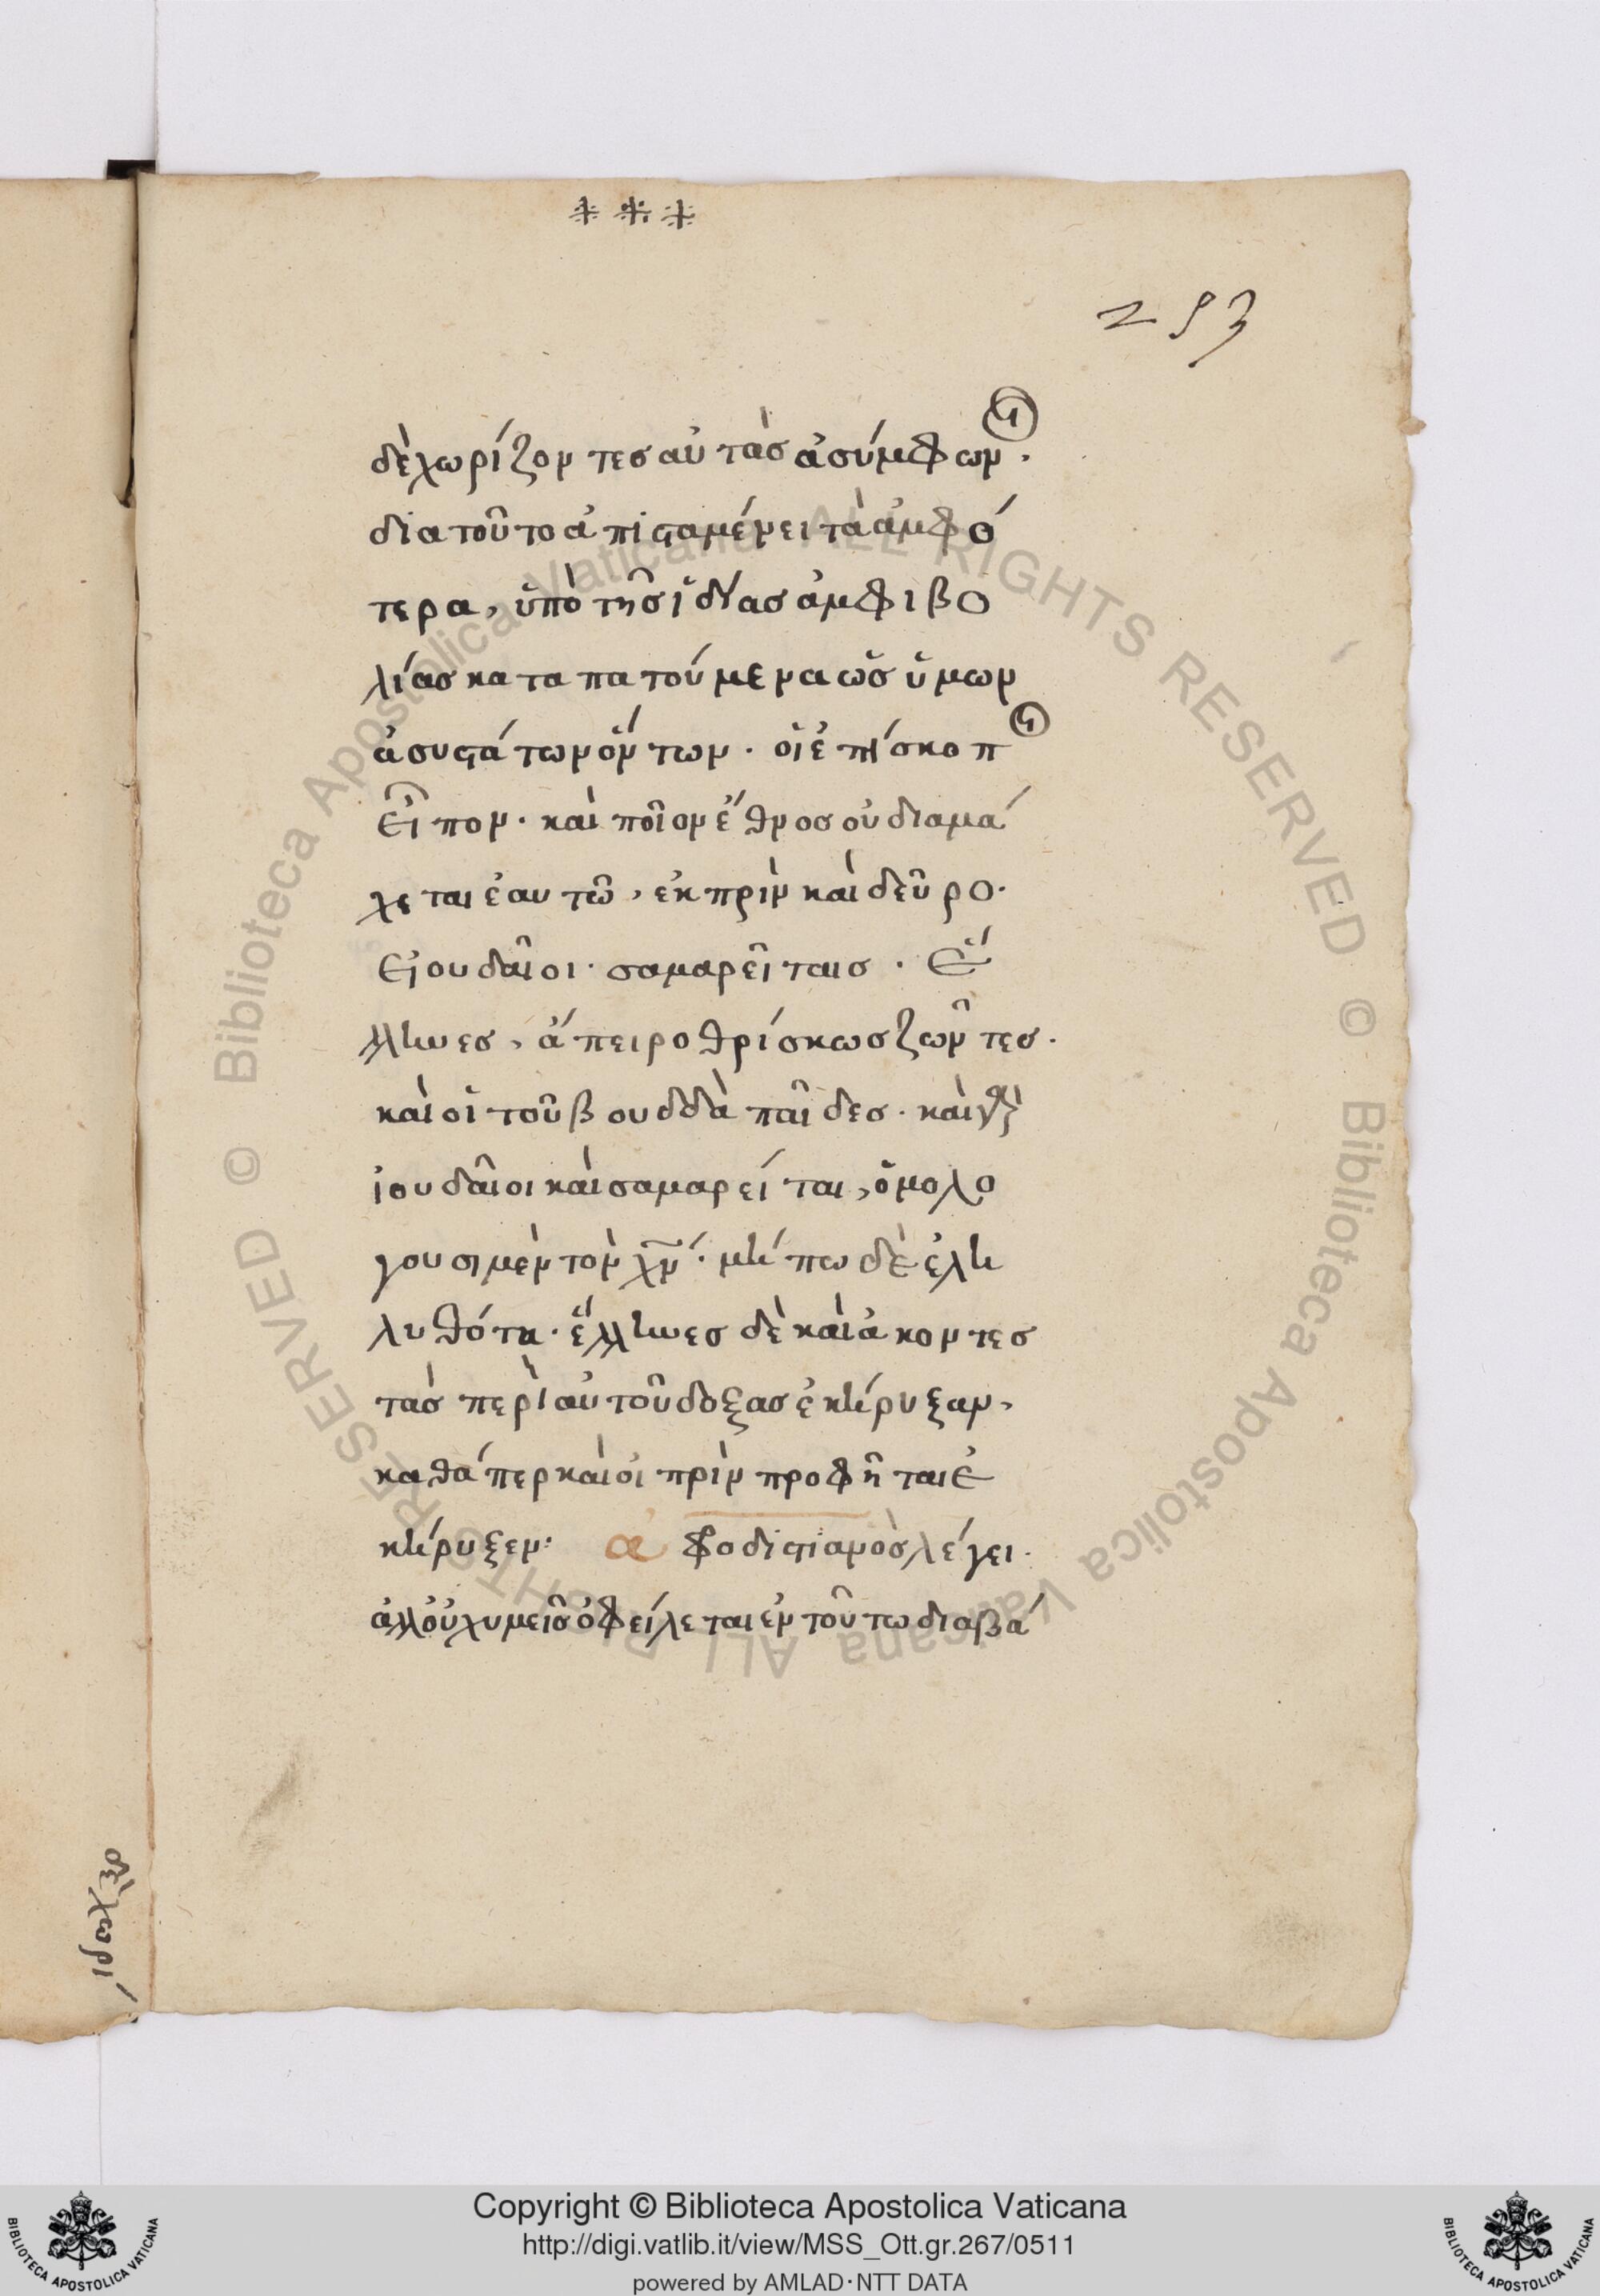 ⁜ ⁜ ⁜
253
δὲ χωρίζοντες αὐτὰς ἀσύμφων.
διατοῦτο ἄπιστα μένει τὰ ἀμφό
τερα, ὑπὸ τῆς ἰδίας ἀμφιβο
λίας καταπατούμενα ὡς ὑμων
ἀσυστάτων ὄντων. οἱ ἐπίσκοπ
εἶπον. καὶ ποῖον ἔθνος οὐ διαμά
χεται ἑαυτῶ, ἐκ πρὶν καὶ δεῦρο.
εἰουδαῖοι. σαμαρείταις. ἕ
λληνες, ἀπειροθρίσκως ζῶντες.
καὶ οἱ τοῦ βουδδὰ παῖδες. καὶ
ἰουδαῖοι καὶ σαμαρείται, ὁμολο
γουσι μὲν τὸν χν. μήπω δὲ ἐλη
λυθότα. ἕλληνες δὲ καὶ ἄκοντες
τὰς περὶ αὐτοῦ δοξας ἐκήρυξαν,
καθάπερ καὶ οἱ πρὶν προφῆται ἐ
κήρυξεν: ἀφροδιτιανὸς λέγει.
ἀλλ' οὐχ υμεῖς ὀφείλεται ἐν τούτω διαβά
Copyright © Biblioteca Apostolica Vaticana
http://digi.vatlib.it/view/MSS_Ott.gr.267/0511
powered by AMLAD·NTT DATA
BIBLIOTECA APOSTOLICA VATICANA
BIBLIOTECA APOSTOLICA VATICANA
© Biblioteca Apostolica Vaticana ALL RIGHTS RESERVED
© Biblioteca Apostolica Vaticana ALL RIGHTS RESERVED